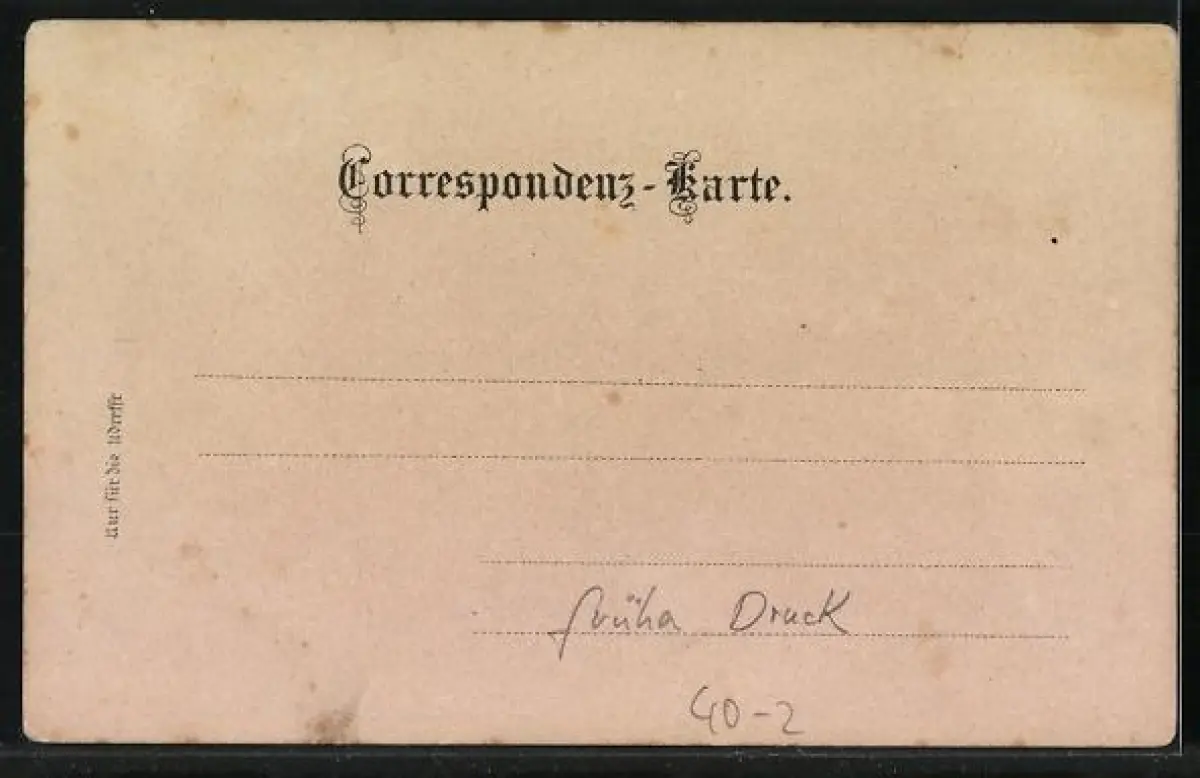 Correspondenz-Karte.
Nur für die Adresse
früha Druck
40-2